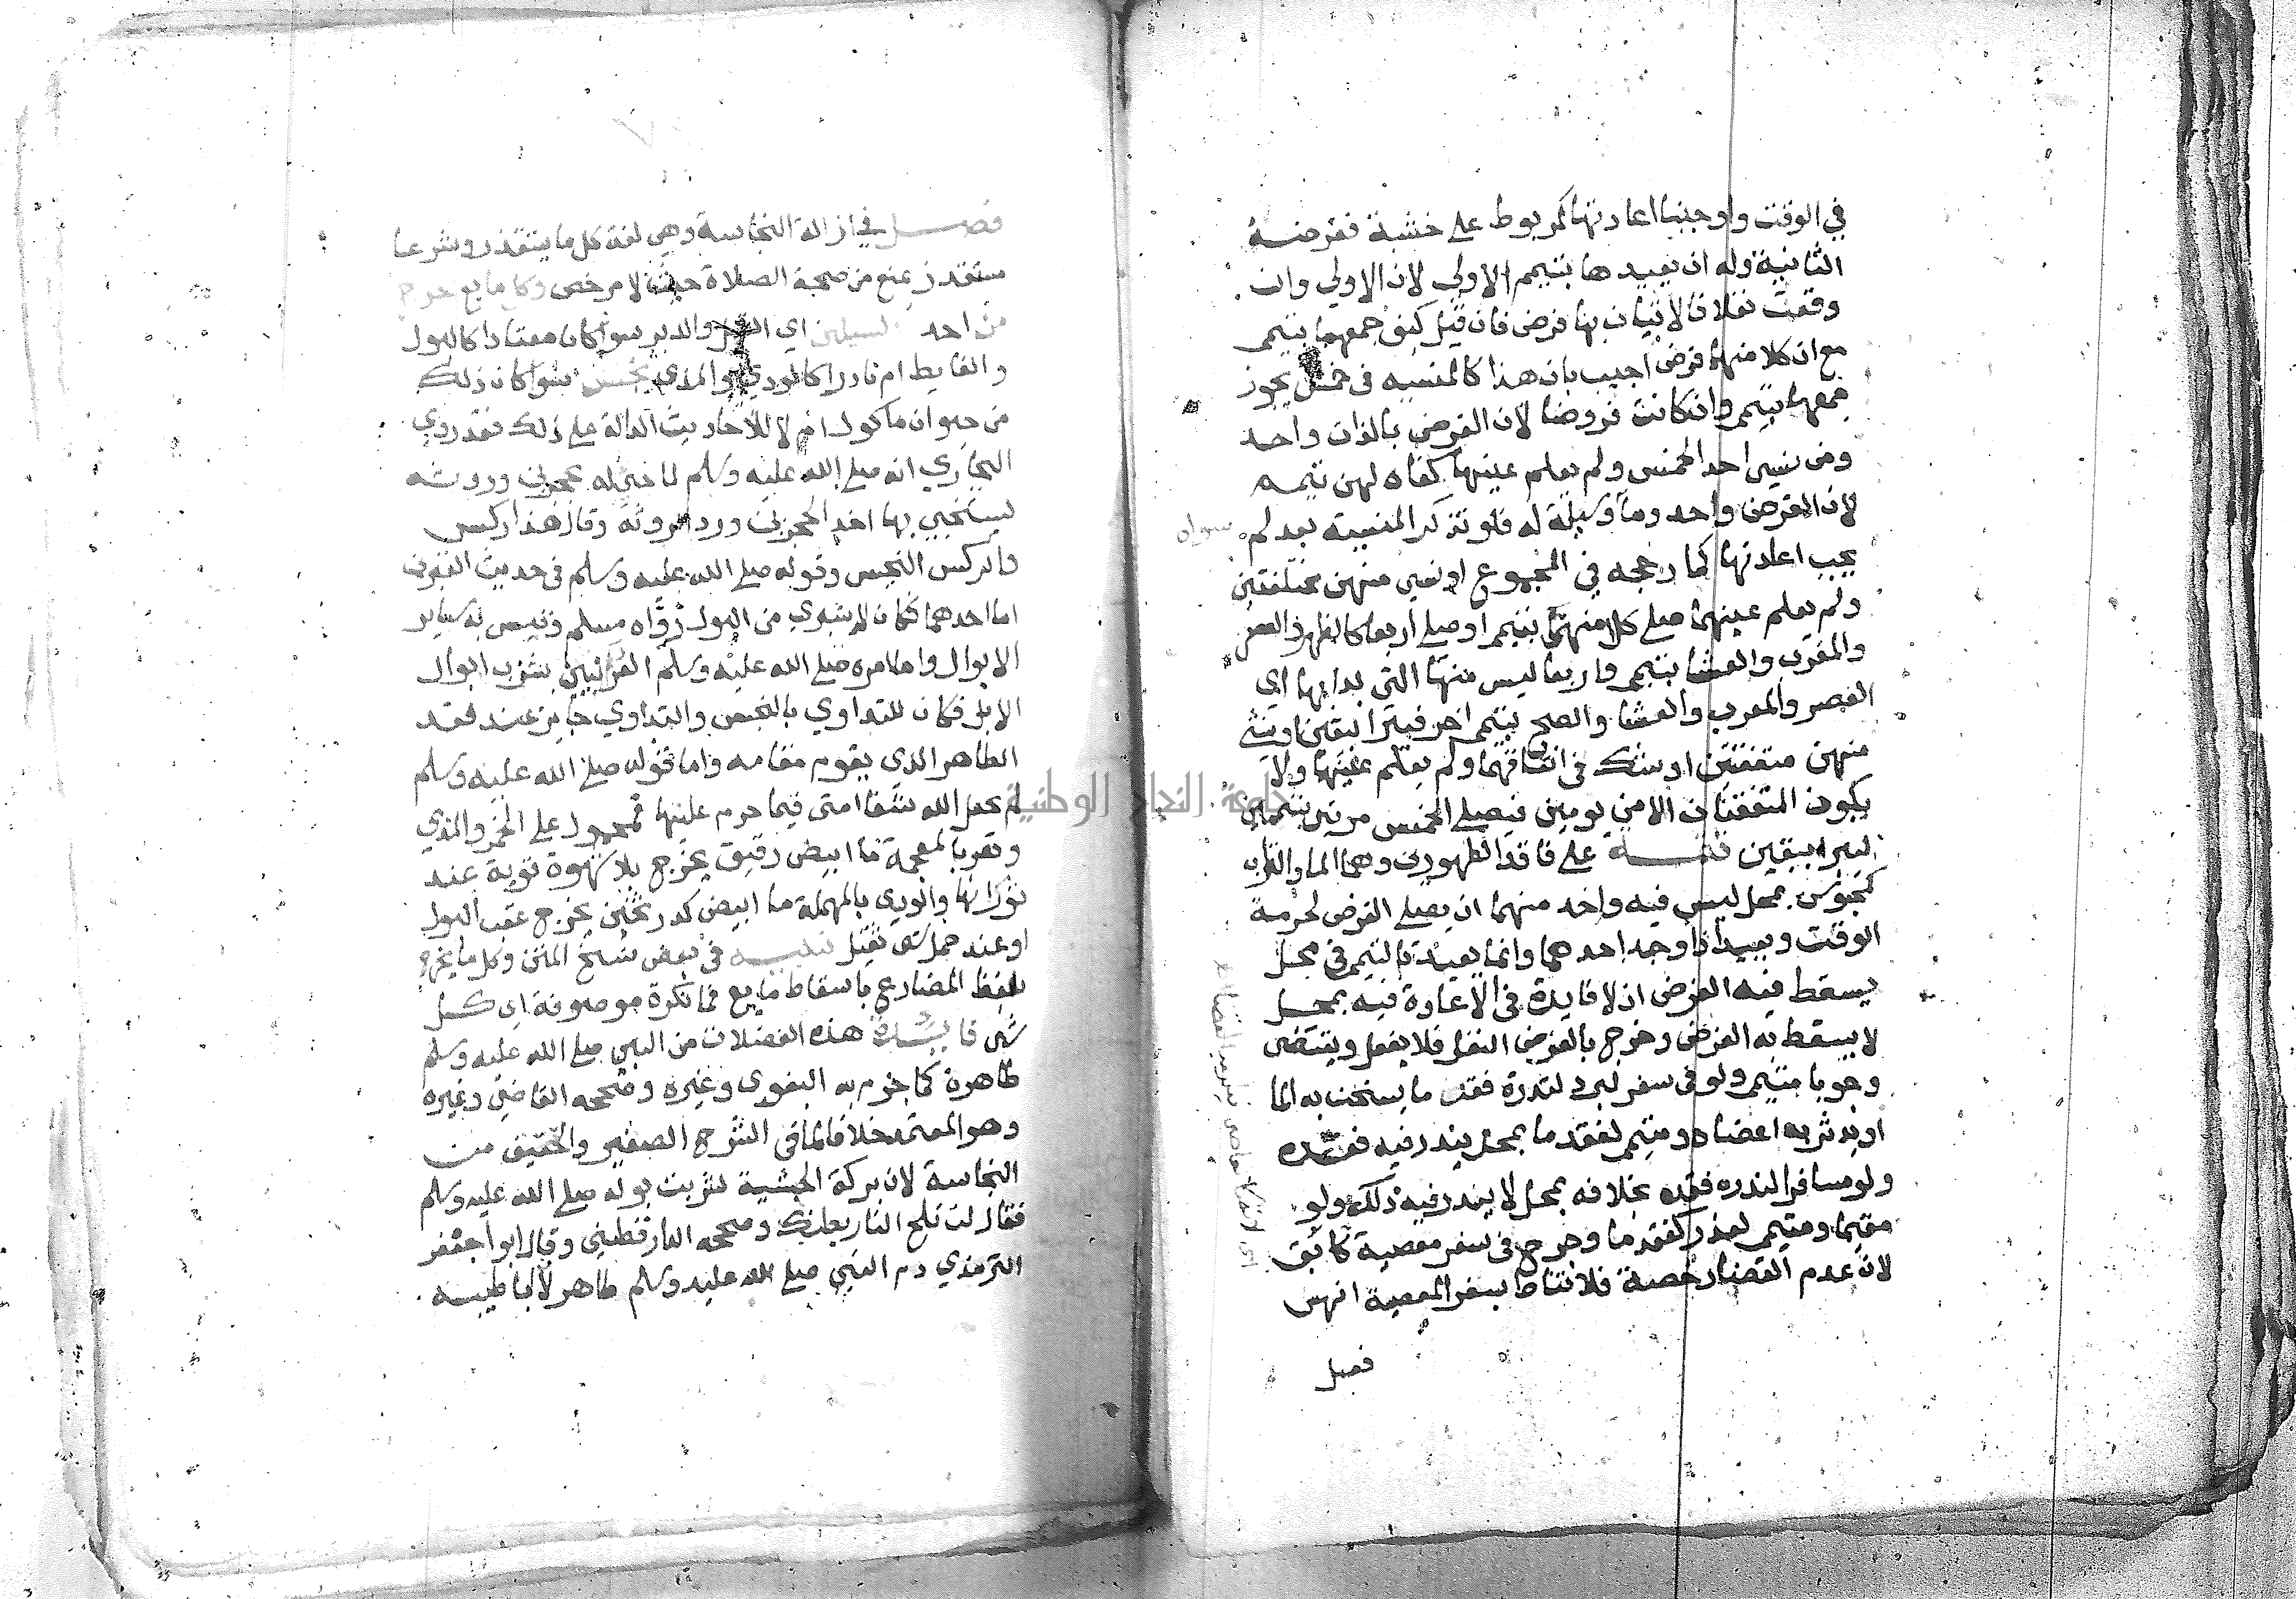 في الوقت واوجبنا اعادتها كمربوط على خشبة ففرضه
الثانية وله ان يعيدها بتيمم الاولي لان الاولي وان
وقعت نفلا فالاتيان بها فرض فان قيل كيف جمعهما بتيمم
مع ان كلا منهما فرض اجيب بان هذا كالمنسيه في خمس يجوز
جمعها بتيمم وان كانت فروضا لان الفرض بالذات واحد
ومن نسي احد الخمس ولم يعلم عينها كفاه لهن تيمم
لان الفرض واحد وما وسيلة له فلو تذكر المنسية بعد لم
يجب اعادتها كما رجحه في المجموع او نسي منهن مختلفتين
ولم يعلم عينهما صلى كل منهن بتيمم او صلى اربعا كالظهر والعصر
والمغرب والعشا بتيمم واربعا ليس منها التي بدا بها اي
العصر والمغرب والعشا والصبح بتيمم اخر فيبرا بيقين او نسي
منهن متفقتين او شك في اتفاقهما ولم يعلم عينها ولا
يكون المتفقتان الا من يومين فيصلي الخمس مرتين بتيممين
ليبرا بيقين تتمة على فاقد الطهورين وهما الما والتراب
كمحبوس بمحل ليس فيه واحد منهما ان يصلي الفرض لحرمة
الوقت ويعيد اذا وجد احدهما وانما يعيد بالتيمم في محل
يسقط فيه الفرض اذ لا فايدة في الاعادة فيه بمحل
لا يسقط به الفرض وخرج بالفرض النفل فلا يفعل ويقضي
وجوبا متيمم ولو في سفر لبرد لندرة فقد ما يسخن به الما
او يدثر به اعضاه ومتيمم لفقد ما بمحل يندر فيه فقده
ولو مسافرا لندره فقده بخلافه بمحل لا يندر فيه ذلك ولو
مقيما ومتيمم لعذر كفقد ما وجرح في سفر معصية كآبق
لان عدم القضا رخصة فلا تناط بسفر المعصية انهى
فصل
فصل في ازالة النجاسة وهي لغة كل ما يستقذر وشرعا
مستقذر يمنع من صحة الصلاة حيث لا مرخص وكل مايع خرج
من احد السبيلين اي القبل والدبر سوا كان معتادا كالبول
والغايط ام نادرا كالودي والمذي نجس سوا كان ذلك
من حيوان ماكول ام لا للاحاديث الدالة على ذلك فقد روي
البخاري انه صلى الله عليه وسلم لما جي له بحجرين وروثه
ليستنجي بها اخذ الحجرين ورد الروثة وقال هذا ركس
والركس النجس وقوله صلى الله عليه وسلم في حديث القبرين
اما احدهما فكان لا يستبري من البول رواه مسلم وقيس به ساير
الابوال واما امره صلى الله عليه وسلم العرنيين بشرب ابوال
الابل فكان للتداوي بالنجس والتداوي جايز عند فقد
الطاهر الذي يقوم مقامه واما قوله صلى الله عليه وسلم
لم يجعل الله شفا امتي فيما حرم عليها فمحمول على الخمر والمذي
وهو بالمعجمة ما ابيض رقيق يخرج بلا شهوة قوية عند
ثورانها والودي بالمهملة ما ابيض كدر ثخين يخرج عقب البول
او عند حمل شي ثقيل تنبيه في بعض نسخ المتن وكل ما يخرج
بلفظ المضارع باسقاط مايع فما نكرة موصوفة اي كل
شي فايدة هذه الفضلات من النبي صلى الله عليه وسلم
طاهرة كما جزم به البغوي وغيره وصححه القاضي وغيره
وهو المعتمد خلافا لما في الشرح الصغير والتحقيق من
النجاسة لان بركة الحبشية شربت بوله صلى الله عليه وسلم
فقال لن تلج النار بطنك وصححه الدارقطني وقال ابوا جعفر
الترمذي دم النبي صلى الله عليه وسلم طاهر لان ابا طيبه
جامعة النجاح الوطنية